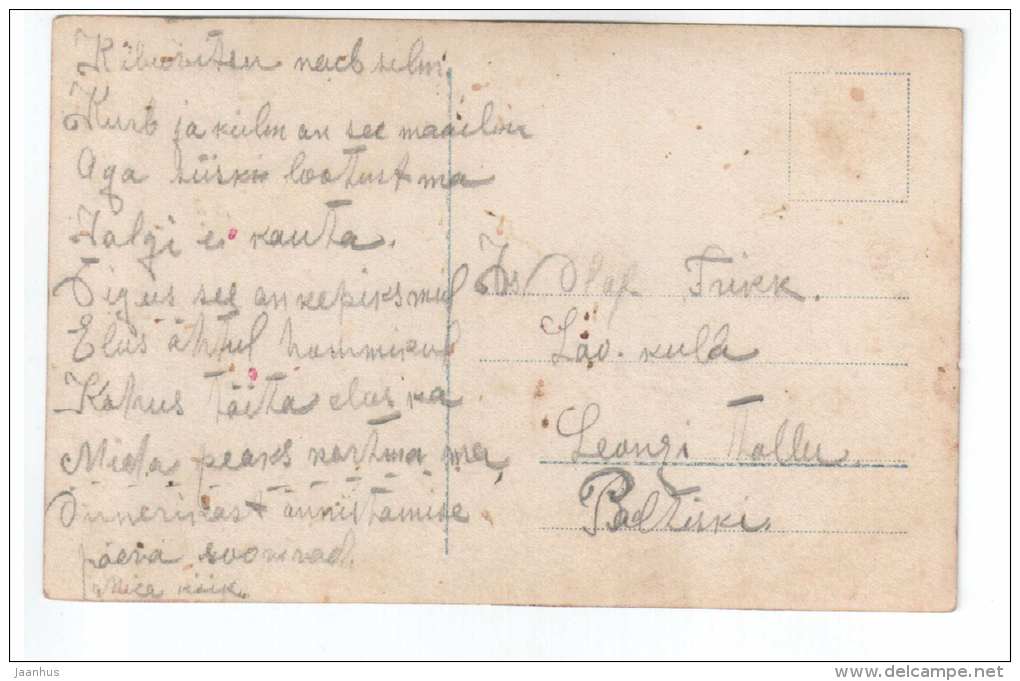 Kibuvitsu naeb silm,
Kurb ja külm an see maailm
Aga siiski lootust ma
Jalgi ei kauta.
Õigus see an kepiks mul
Elus õhtul hommikul
Kohus täita elus ka
Mida peaks kartma ma,
Õnnerikast õnnistamise
päeva soovivad.
Meie kõik.
Hrs Olaf Trikk.
Lao. kula
Leongi Tallu
Baltiski.
Jaanhus
www.delcampe.net